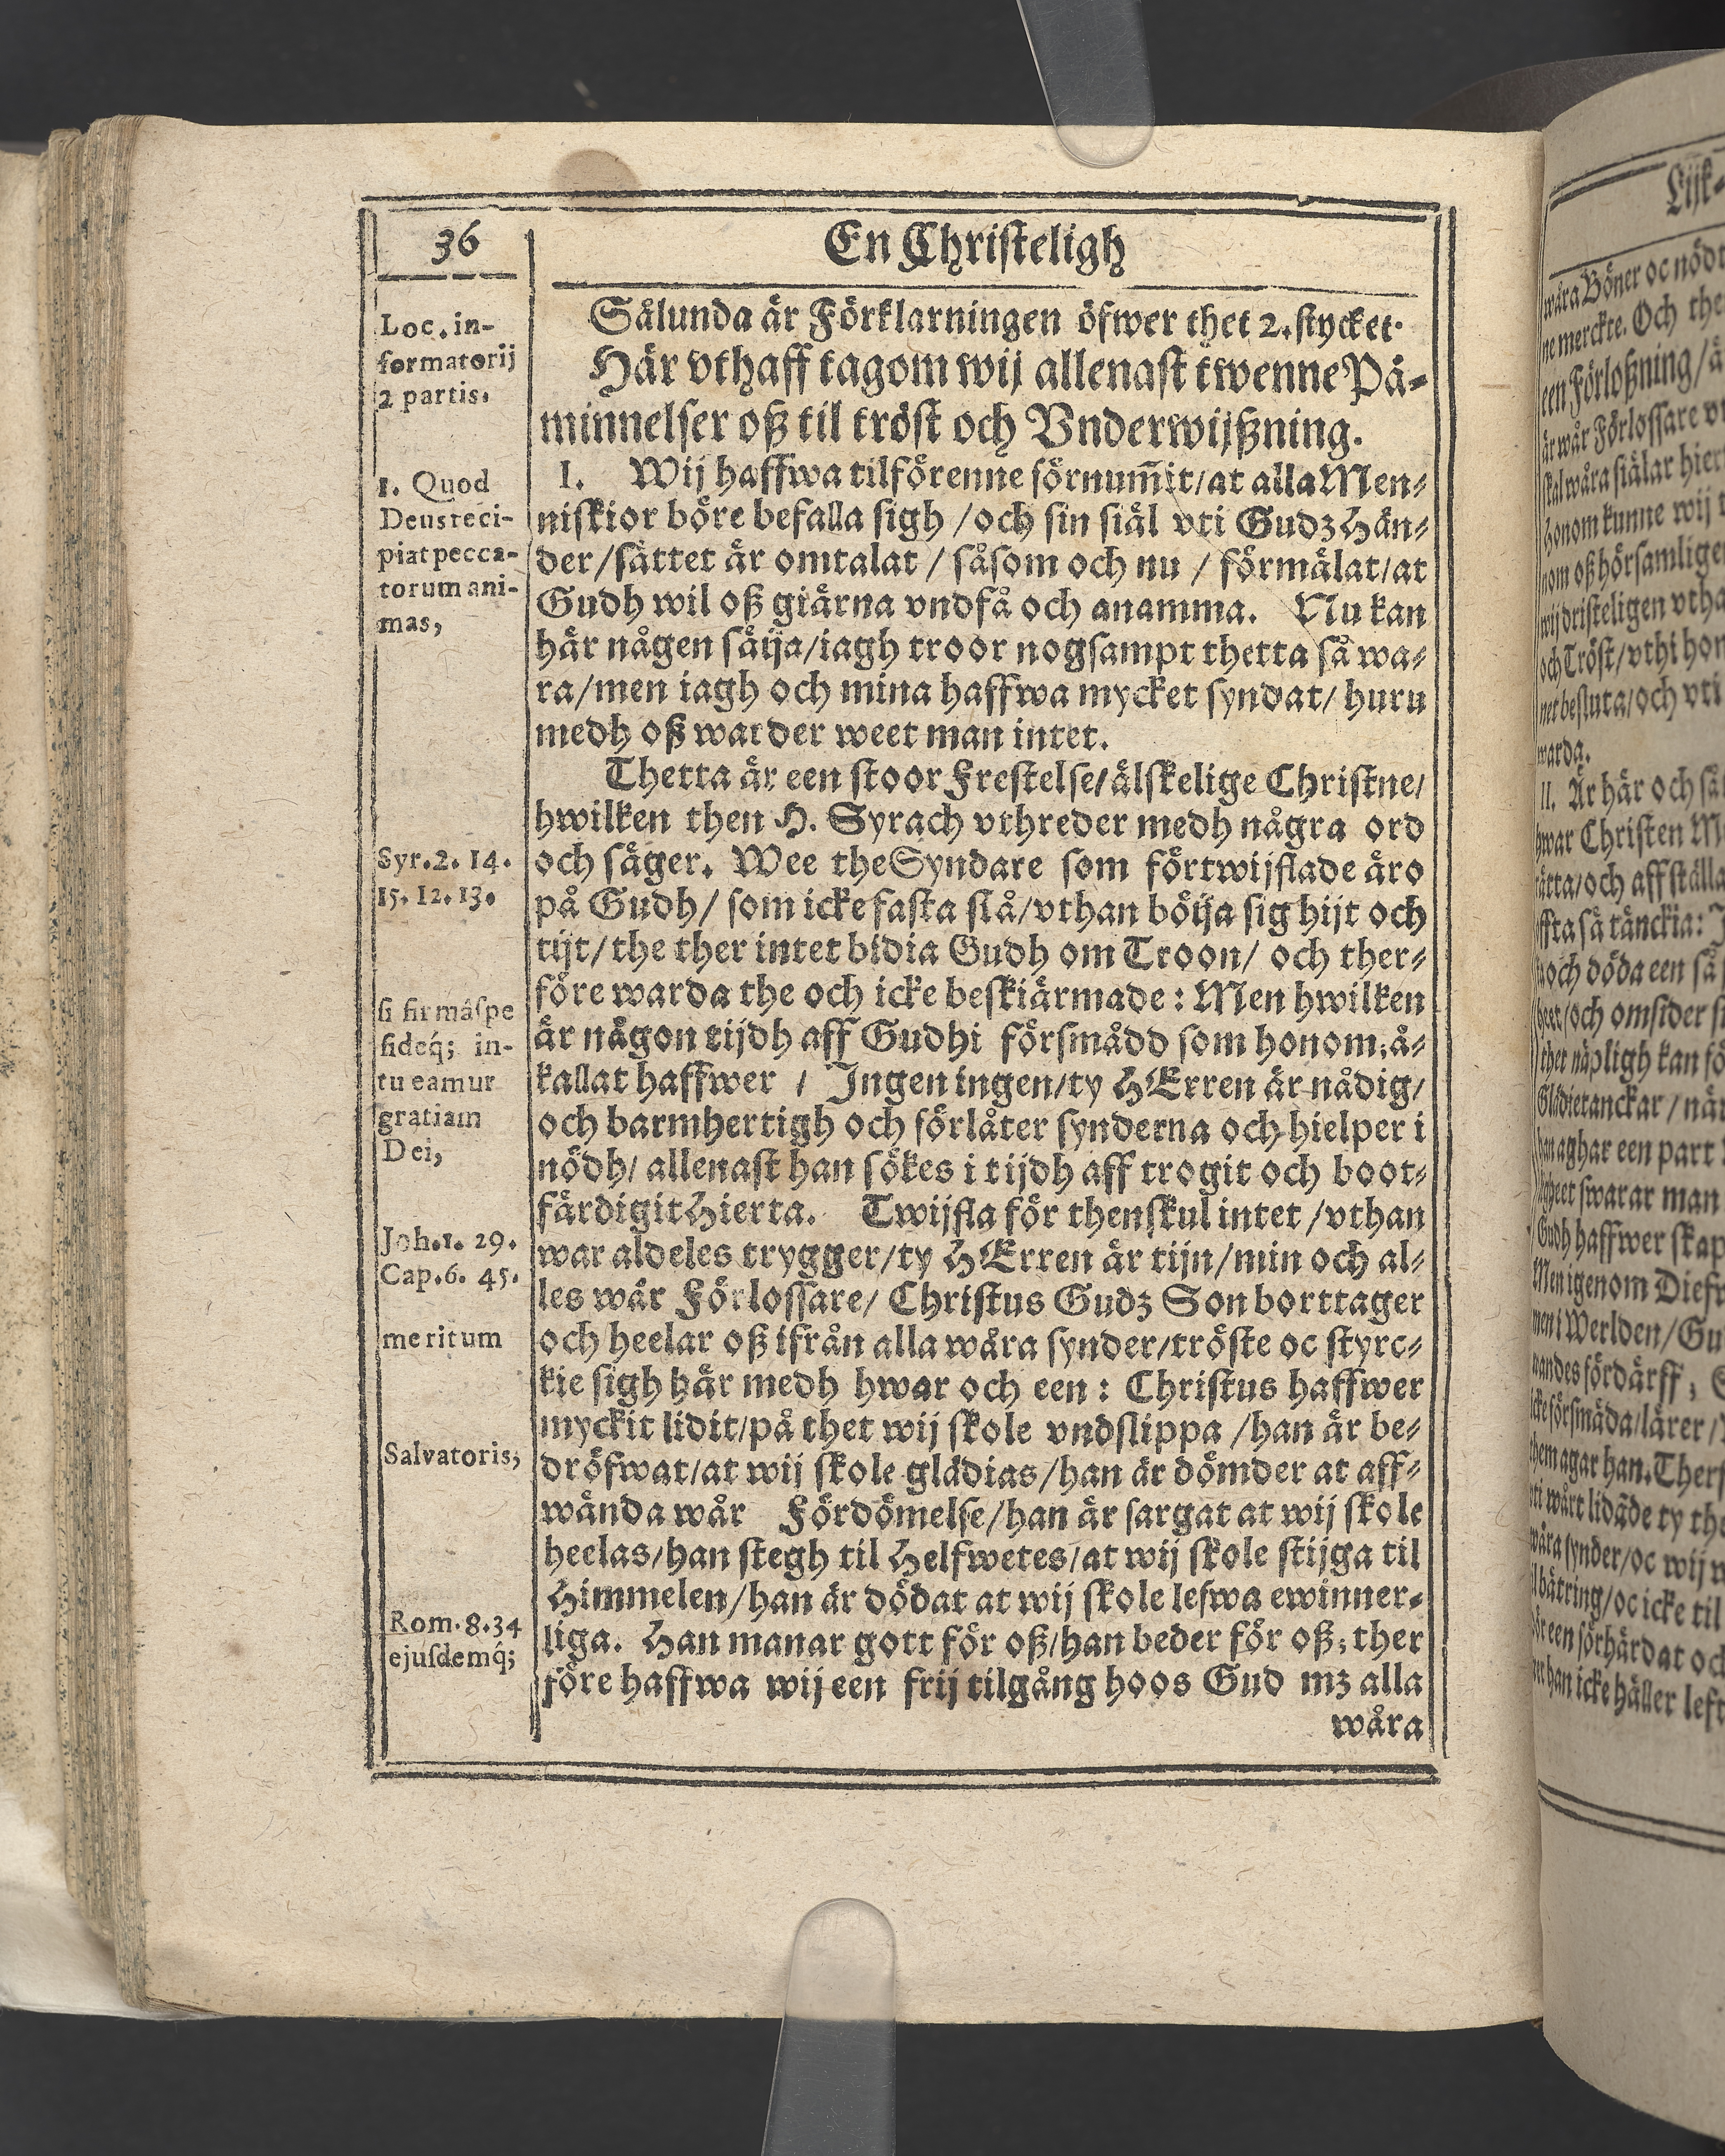 36
En Christeligh
Loc. in-
formatorij
2 partis.
1. Quod
Deus reci-
piat pecca-
torum ani-
mas,
Syr. 2. 14.
15. 12. 13.
si firmâ spe
fideq́; in-
tueamur
gratiam
Dei,
Joh. 1. 29.
Cap. 6. 45.
meritum
Salvatoris,
Rom. 8. 34
ejusdemq́;
Sålunda är Förklarningen öfwer thet 2. stycket.
Här vthaff tagom wij allenast twenne På-
minnelser oß til tröst och Vnderwijßning.
I. Wij haffwa tilförenne förnum̄it/at alla Men-
niskior böre befalla sigh /och sin siäl vti Gudz Hän-
der/sättet är omtalat / såsom och nu / förmälat/at
Gudh wil oß giärna vndfå och anamma. Nu kan
här någen säija/iagh troor nogsampt thetta så wa-
ra/men iagh och mina haffwa mycket syndat/ huru
medh oß warder weet man intet.
Thetta är een stoor Frestelse/älskelige Christne/
hwilken then H. Syrach vthreder medh några ord
och säger. Wee the Syndare som förtwijflade äro
på Gudh/ som icke fasta stå/vthan böija sig hijt och
tijt/ the ther intet bidia Gudh om Troon/ och ther-
före warda the och icke beskiärmade: Men hwilken
är någon tijdh aff Gudhi försmådd som honom å-
kallat haffwer / Ingen ingen/ty HErren är nådig/
och barmhertigh och förlåter synderna och hielper i
nödh/ allenast han sökes i tijdh aff trogit och boot-
färdigit Hierta. Twijfla för thenskul intet /vthan
war aldeles trygger/ty HErren är tijn/min och al-
les wår Förlossare/ Christus Gudz Son borttager
och heelar oß ifrån alla wåra synder/tröste oc styrc-
kie sigh här medh hwar och een: Christus haffwer
myckit lidit/på thet wij skole vndslippa /han är be-
dröfwat/at wij skole glädias/han är dömder at aff-
wända wår Fördömelse/han är sargat at wij skole
heelas/han stegh til Helfwetes/at wij skole stijga til
Himmelen/han är dödat at wij skole lefwa ewinner-
liga. Han manar gott för oß/han beder för oß, ther
före haffwa wij een frij tilgång hoos Gud mz alla
wåra